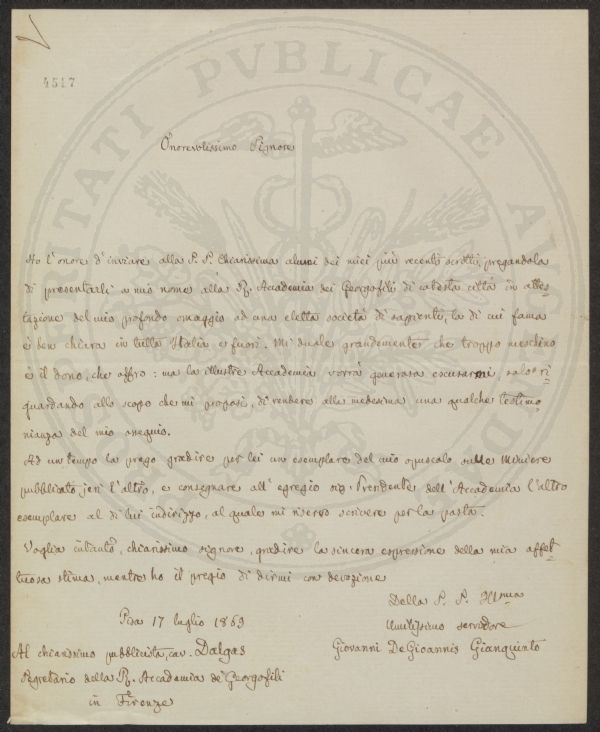 4517
Onorevolissimo Signore
Ho l'onore d'inviare alla S. S. Chiarissima alcuni dei miei più recenti scritti, pregandola
di presentarli a mio nome alla R. Accademia dei Georgofili di codesta città in attes-
tazione del mio profondo omaggio ad una eletta società di sapienti, la di cui fama
è ben chiara in tutta Italia e fuori. Mi duole grandemente che troppo meschino
è il dono, che offro: ma la illustre Accademia vorrà generosa escusarmi solo ri-
guardando allo scopo che mi proposi, di rendere alla medesima una qualche testimo-
nianza del mio ossequio.
Ad un tempo la prego gradire per lei un esemplare del mio opuscolo sulle Miniere
pubblicato jeri l'altro, e consegnare all'egregio sig. Presidente dell'Accademia l'altro
esemplare al di lui indirizzo, al quale mi riservo scrivere per la posta.
Voglia intanto, chiarissimo signore, gradire la sincera espressione della mia affet-
tuosa stima, mentre ho il pregio di dirmi con devozione
Della S. S. Ill.ma
Pisa 17 luglio 1869
Umilissimo servidore
Giovanni DeGioannis Gianquinto
Al chiarissimo pubblicista, cav. Dalgas
Segretario della R. Accademia de' Georgofili
in Firenze